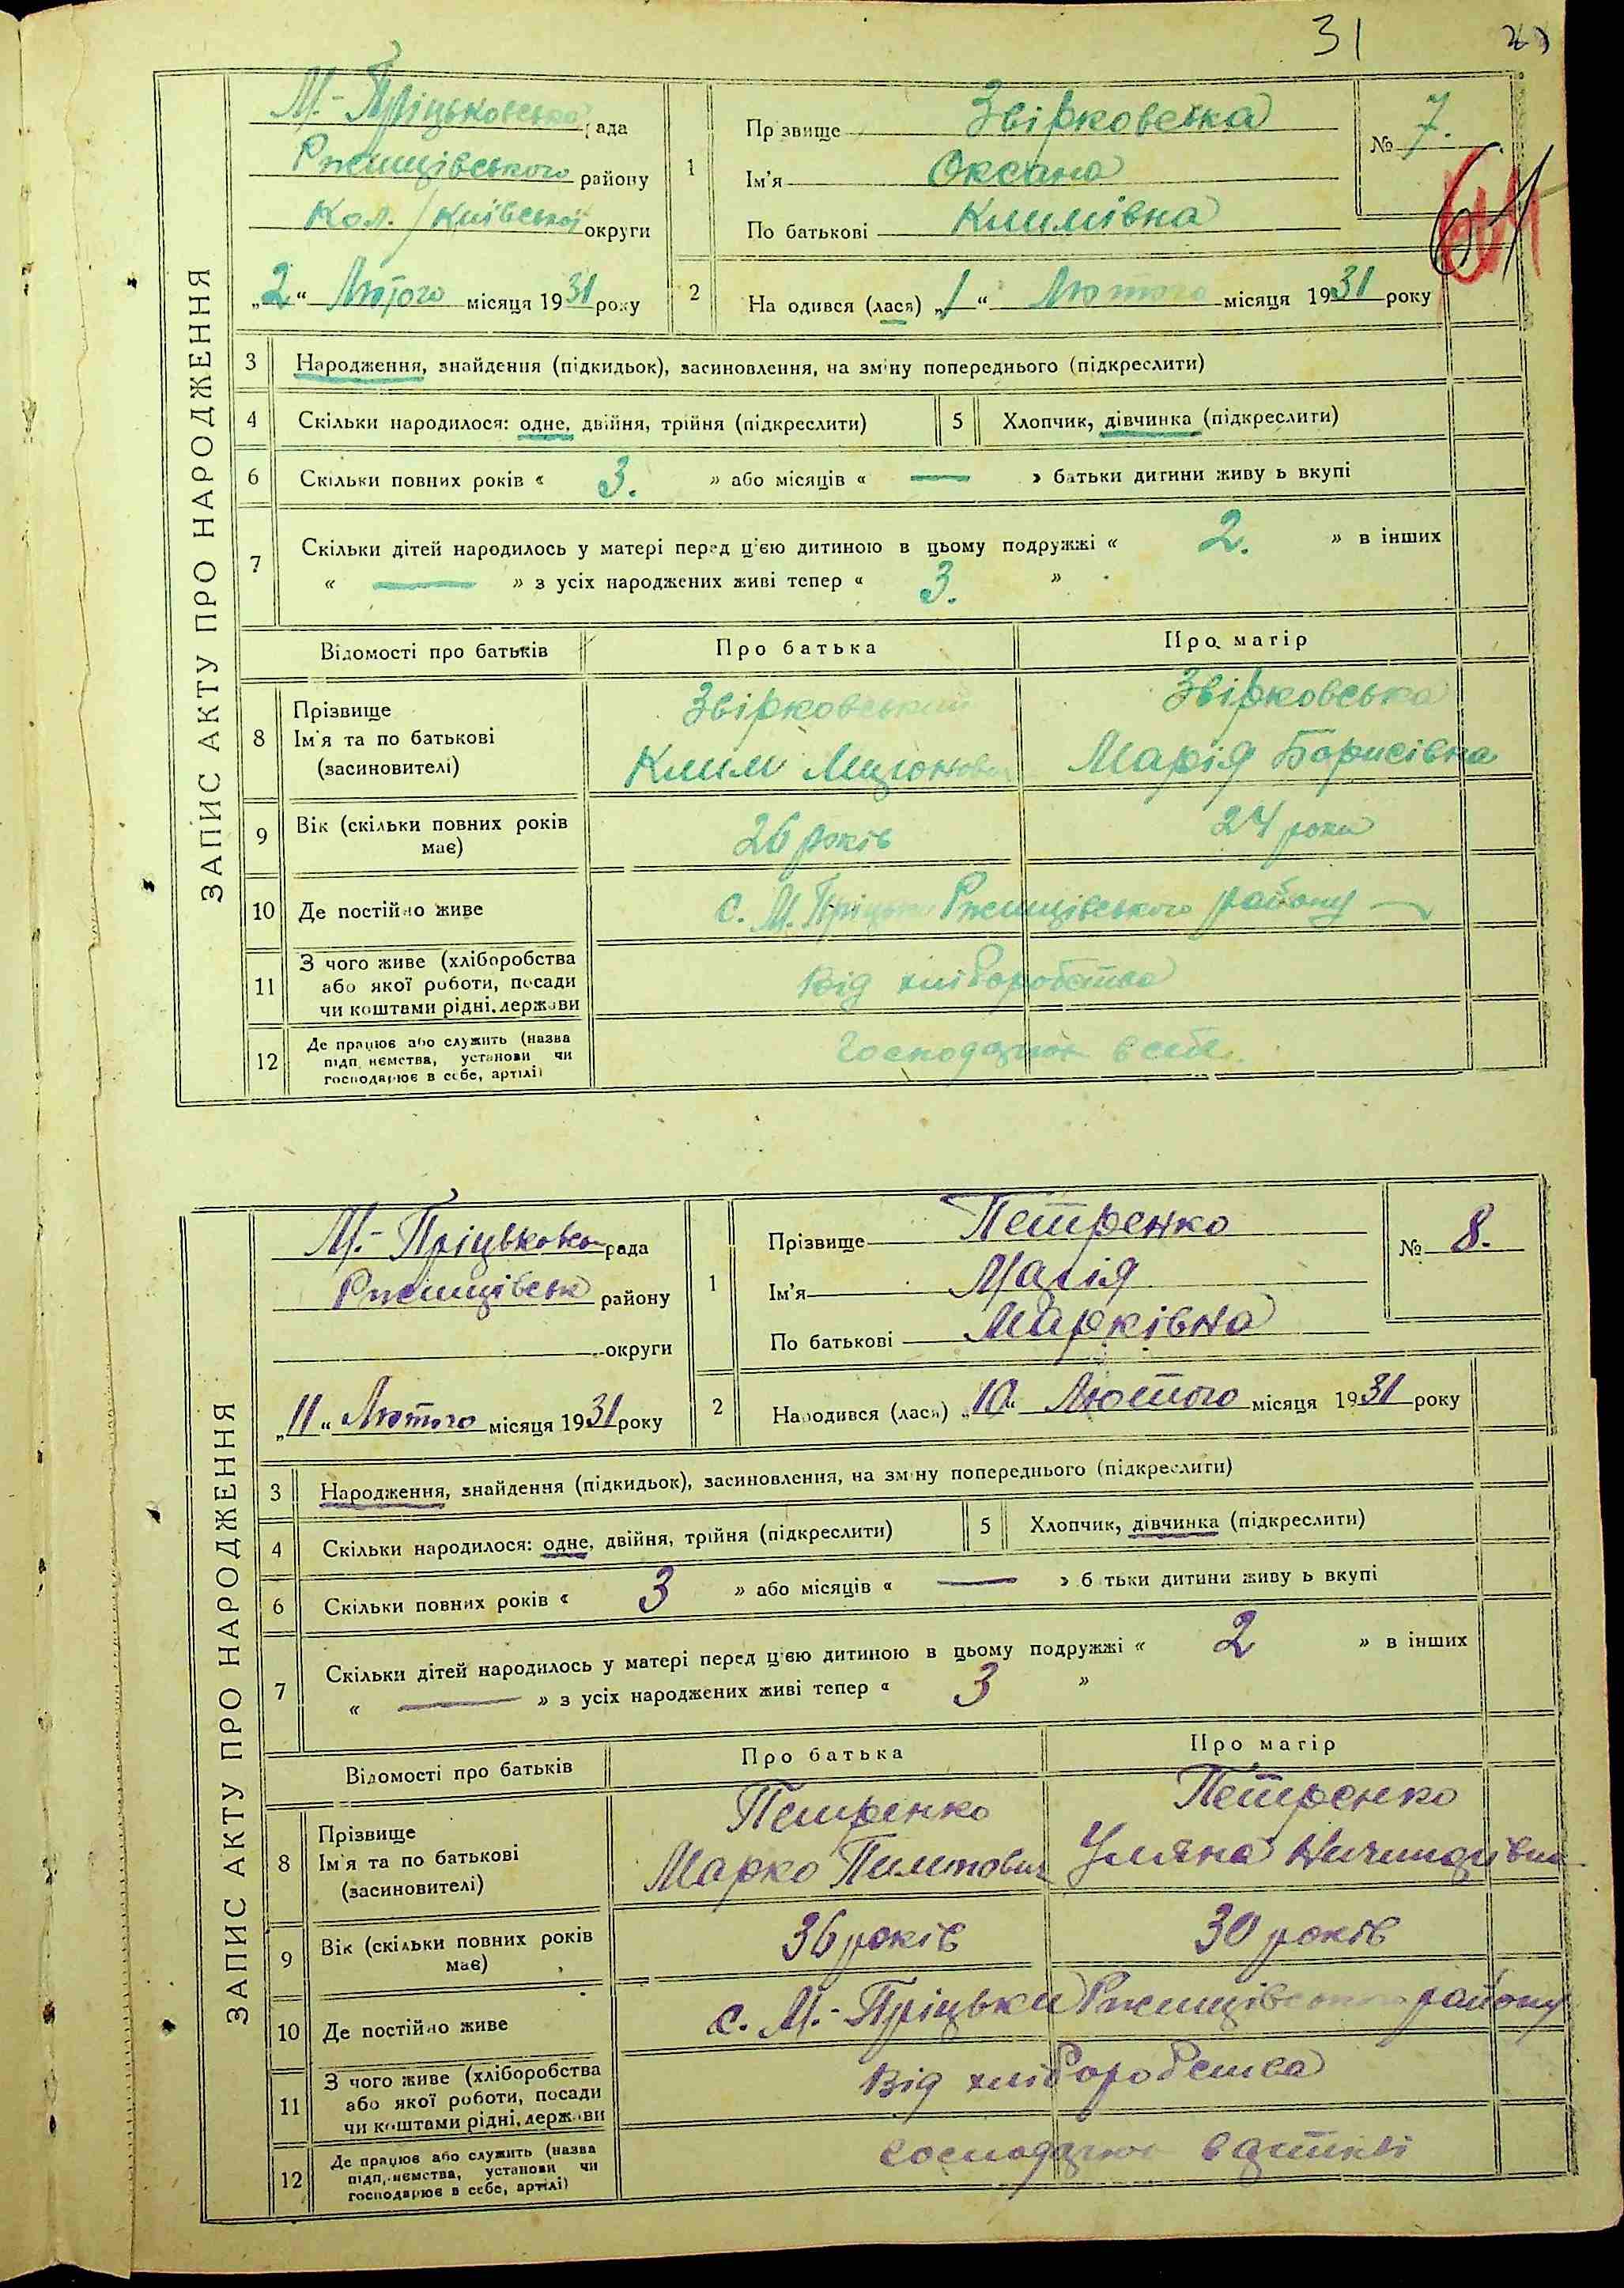 31
ЗАПИС АКТУ ПРО НАРОДЖЕННЯ
М.-Пріцьковська рада
Ржищівського району
Кол. Київської округи
„2“ Лютого місяця 1931 року
1 Прізвище Звірковська
Ім'я Оксана
По батькові Климівна
№ 7.
61
2 На одився (лася) „1“ Лютого місяця 1931 року
3 Народження, знайдення (підкидьок), засиновлення, на зміну попереднього (підкреслити)
4 Скільки народилося: одне, двійня, трійня (підкреслити) 5 Хлопчик, дівчинка (підкреслити)
6 Скільки повних років « 3. » або місяців « — » батьки дитини живу ь вкупі
7 Скільки дітей народилось у матері перед цією дитиною в цьому подружжі « 2. » в інших
« — » з усіх народжених живі тепер « 3. »
Відомості про батьків Про батька Про матір
8 Прізвище
Ім'я та по батькові
(засиновителі)
Звірковський Звірковська
Клим Марія Борисівна
9 Вік (скільки повних років має) 26 років 24 роки
10 Де постійно живе с. М. Пріцьки Ржищівського району
11 З чого живе (хліборобства
або якої роботи, посади
чи коштами рідні, держави
Від хліборобства
12 Де працює або служить (назва
підп иємства, установи чи
господарює в себе, артілі)
Господарює в себе
ЗАПИС АКТУ ПРО НАРОДЖЕННЯ
М.-Пріцьковська рада
Ржищівськ району
округи
„11“ Лютого місяця 1931 року
1 Прізвище Петренко
Ім'я Марія
По батькові Марківна
№ 8.
2 Народився (лася) „10“ Лютого місяця 1931 року
3 Народження, знайдення (підкидьок), засиновлення, на зміну попереднього (підкреслити)
4 Скільки народилося: одне, двійня, трійня (підкреслити) 5 Хлопчик, дівчинка (підкреслити)
6 Скільки повних років « 3 » або місяців « — » б тьки дитини живу ь вкупі
7 Скільки дітей народилось у матері перед цією дитиною в цьому подружжі « 2 » в інших
« — » з усіх народжених живі тепер « 3 »
Відомості про батьків Про батька Про матір
8 Прізвище
Ім'я та по батькові
(засиновителі)
Петренко Петренко
Марко Уляна
9 Вік (скільки повних років має) 36 років 30 років
10 Де постійно живе с. М.-Пріцьки Ржищівського району
11 З чого живе (хліборобства
або якої роботи, посади
чи коштами рідні, держави
Від хліборобства
12 Де працює або служить (назва
підп иємства, установи чи
господарює в себе, артілі)
господарює в артілі